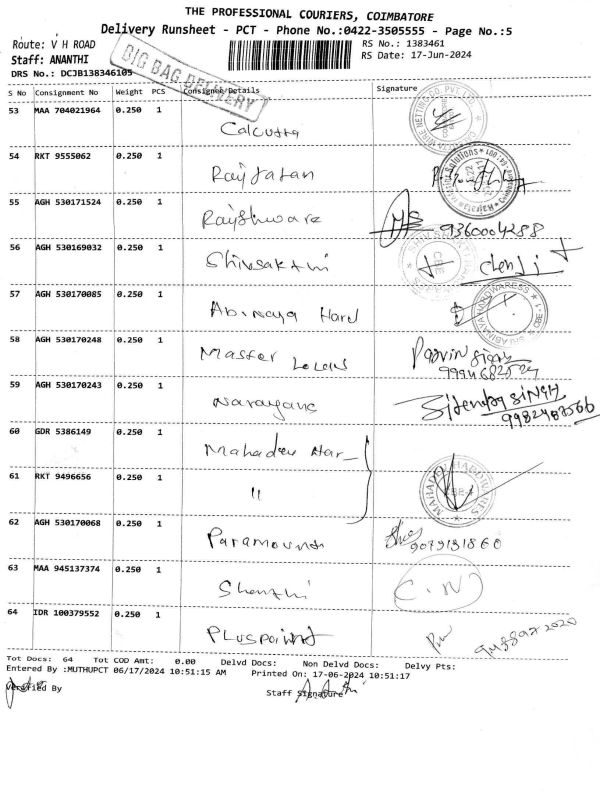 THE PROFESSIONAL COURIERS, COIMBATORE
Delivery Runsheet - PCT - Phone No.:0422-3505555 - Page No.:5
Route: V H ROAD
RS No.: 1383461
Staff: ANANTHI
RS Date: 17-Jun-2024
DRS No.: DCJB138346105
BIG BAG DELIVERY
S No Consignment No Weight PCS Consignee/Details Signature
53 MAA 704021964 0.250 1 Calcutta
54 RKT 9555062 0.250 1 Rajratan
55 AGH 530171524 0.250 1 Rajshware 9360004288
56 AGH 530169032 0.250 1 Shivsakthi
57 AGH 530170085 0.250 1 Abinaya Hard
58 AGH 530170248 0.250 1 Master Locks
59 AGH 530170243 0.250 1 Narayana SINGH
60 GDR 5386149 0.250 1 Mahadev Har
61 RKT 9496656 0.250 1 "
62 AGH 530170068 0.250 1 Paramount 9079131860
63 MAA 945137374 0.250 1 Shanthi
64 IDR 100379552 0.250 1 Pluspoint
Tot Docs: 64 Tot COD Amt: 0.00 Delvd Docs: Non Delvd Docs: Delvy Pts:
Entered By :MUTHUPCT 06/17/2024 10:51:15 AM Printed On: 17-06-2024 10:51:17
Verified By
Staff Signature